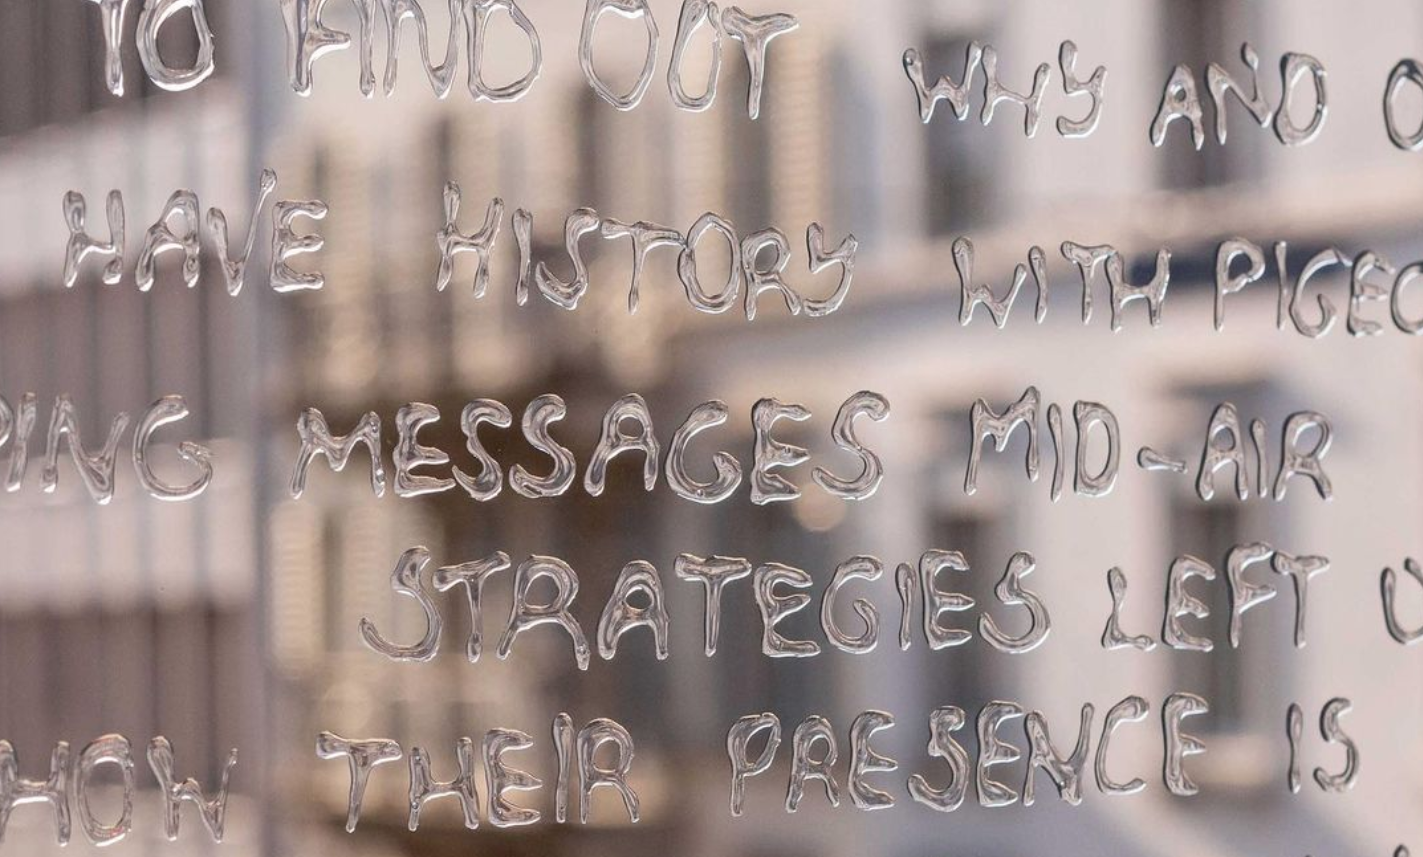 TO FIND OUT WHY AND
HAVE HISTORY WITH
MESSAGES MID-AIR
STRATEGIES LEFT
HOW THEIR PRESENCE IS